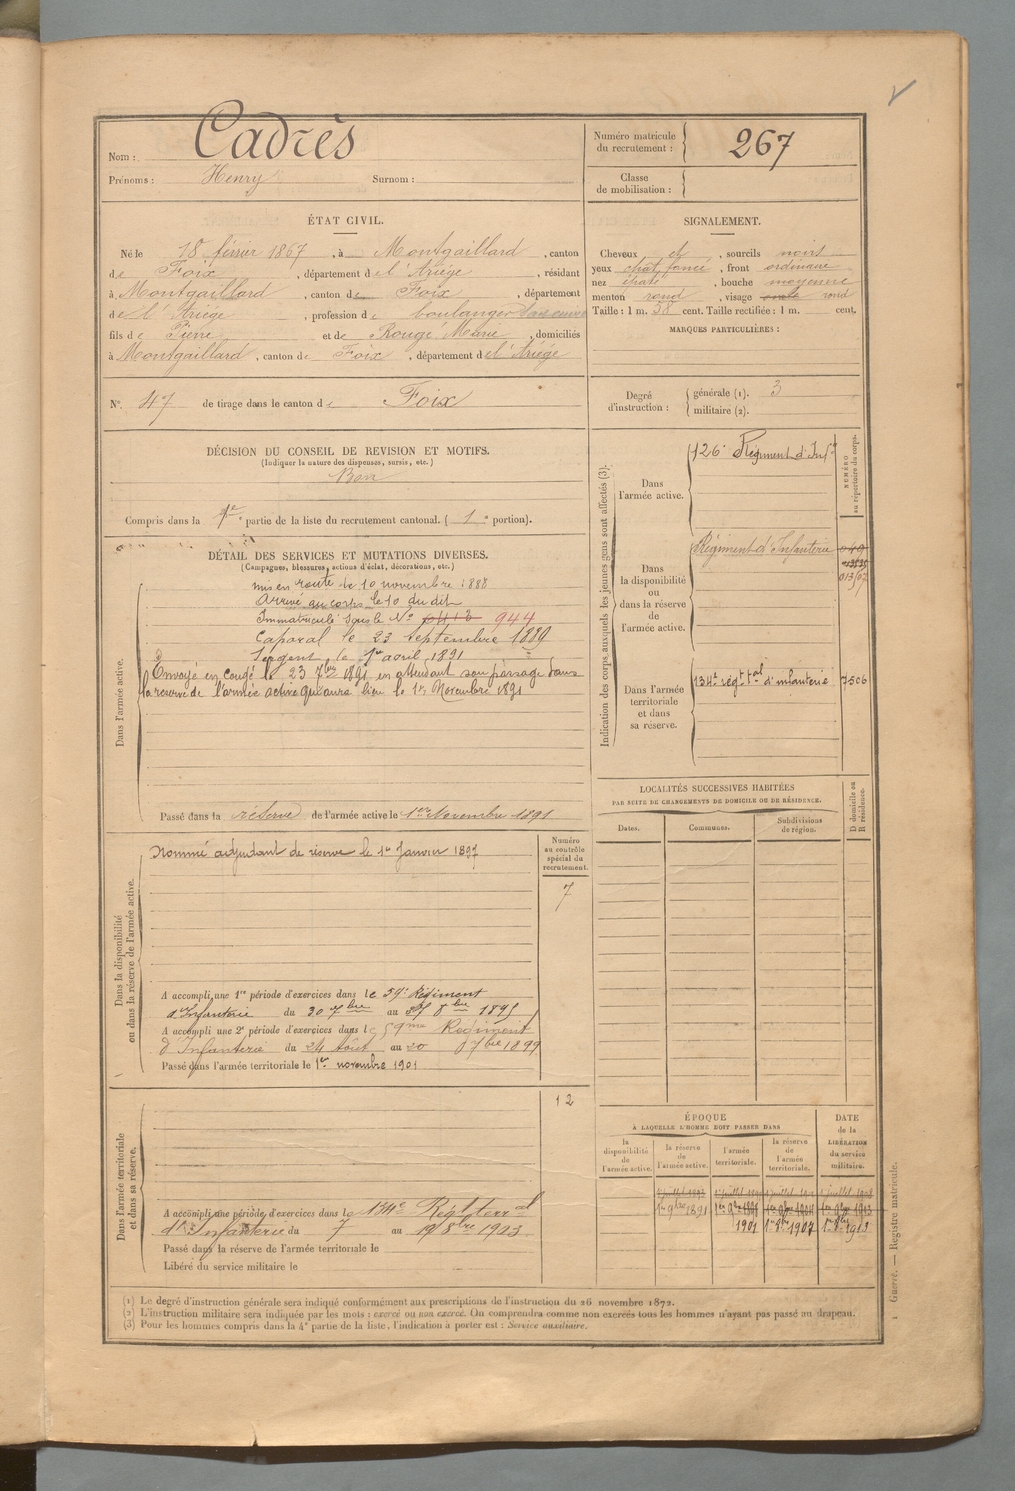 Nom : Cadrès
Prénoms : Henry Surnom :
Numéro matricule du recrutement : 267
Classe de mobilisation :
ÉTAT CIVIL.
Né le 18 février 1867, à Montgaillard, canton
de Foix, département de l'Ariège, résidant
à Montgaillard, canton de Foix, département
de l'Ariège, profession de boulanger
fils de Pierre et de Rougé Marie, domiciliés
à Montgaillard, canton de Foix, département de l'Ariège
SIGNALEMENT.
Cheveux et, sourcils noirs
yeux chat. foncé, front ordinaire
nez épaté, bouche moyenne
menton rond, visage ovale rond
Taille : 1 m. 58 cent. Taille rectifiée : 1 m. cent.
MARQUES PARTICULIÈRES :
N° 47 de tirage dans le canton de Foix
Degré d'instruction : générale (1). 3
militaire (2).
DÉCISION DU CONSEIL DE REVISION ET MOTIFS.
(Indiquer la nature des dispenses, sursis, etc.)
Bon
Compris dans la 1re partie de la liste du recrutement cantonal. ( 1e portion).
DÉTAIL DES SERVICES ET MUTATIONS DIVERSES.
(Campagnes, blessures, actions d'éclat, décorations, etc.)
Dans l'armée active.
mis en route le 10 novembre 1888
Arrivé au corps le 10 du dit
Immatriculé sous le N° 944
Caporal le 23 septembre 1889
Sergent le 1er avril 1891
Envoyé en congé le 23 7bre 1891 en attendant son passage dans
la réserve de l'armée active qui aura lieu le 1er Novembre 1891
Passé dans la réserve de l'armée active le 1er Novembre 1891
Indication des corps auxquels les jeunes gens sont affectés (3).
NUMÉRO au répertoire du corps.
Dans l'armée active.
126e Régiment d'Inf.
Dans la disponibilité ou dans la réserve de l'armée active.
Régiment d'Infanterie
013/07
Dans l'armée territoriale et dans sa réserve.
134e régt tal d'infanterie 7506
LOCALITÉS SUCCESSIVES HABITÉES
PAR SUITE DE CHANGEMENTS DE DOMICILE OU DE RÉSIDENCE.
D domicile ou R résidence.
Dates. Communes. Subdivisions de région.
Dans la disponibilité ou dans la réserve de l'armée active.
Numéro au contrôle spécial du recrutement.
7
Nommé adjudant de réserve le 1er Janvier 1897
A accompli une 1re période d'exercices dans le 59e Régiment
d'Infanterie du 30 7bre au 8bre 1895
A accompli une 2e période d'exercices dans le 59me Régiment
d'Infanterie du 24 Août au 20 7bre 1899
Passé dans l'armée territoriale le 1er novembre 1901
12
Dans l'armée territoriale et dans sa réserve.
A accompli une période d'exercices dans le 134e Rég terral
d'Infanterie du 7 au 19 8bre 1903
Passé dans la réserve de l'armée territoriale le
Libéré du service militaire le
ÉPOQUE
À LAQUELLE L'HOMME DOIT PASSER DANS
DATE de la LIBÉRATION du service militaire.
la disponibilité de l'armée active.
la réserve de l'armée active.
l'armée territoriale.
la réserve de l'armée territoriale.
1er 9bre 1891
1901 1er 9bre 1907 1er 9bre 1913
(1) Le degré d'instruction générale sera indiqué conformément aux prescriptions de l'instruction du 26 novembre 1872.
(2) L'instruction militaire sera indiquée par les mots : exercé ou non exercé. On comprendra comme non exercés tous les hommes n'ayant pas passé au drapeau.
(3) Pour les hommes compris dans la 4e partie de la liste, l'indication à porter est : Service auxiliaire.
Guerre. — Registre matricule.